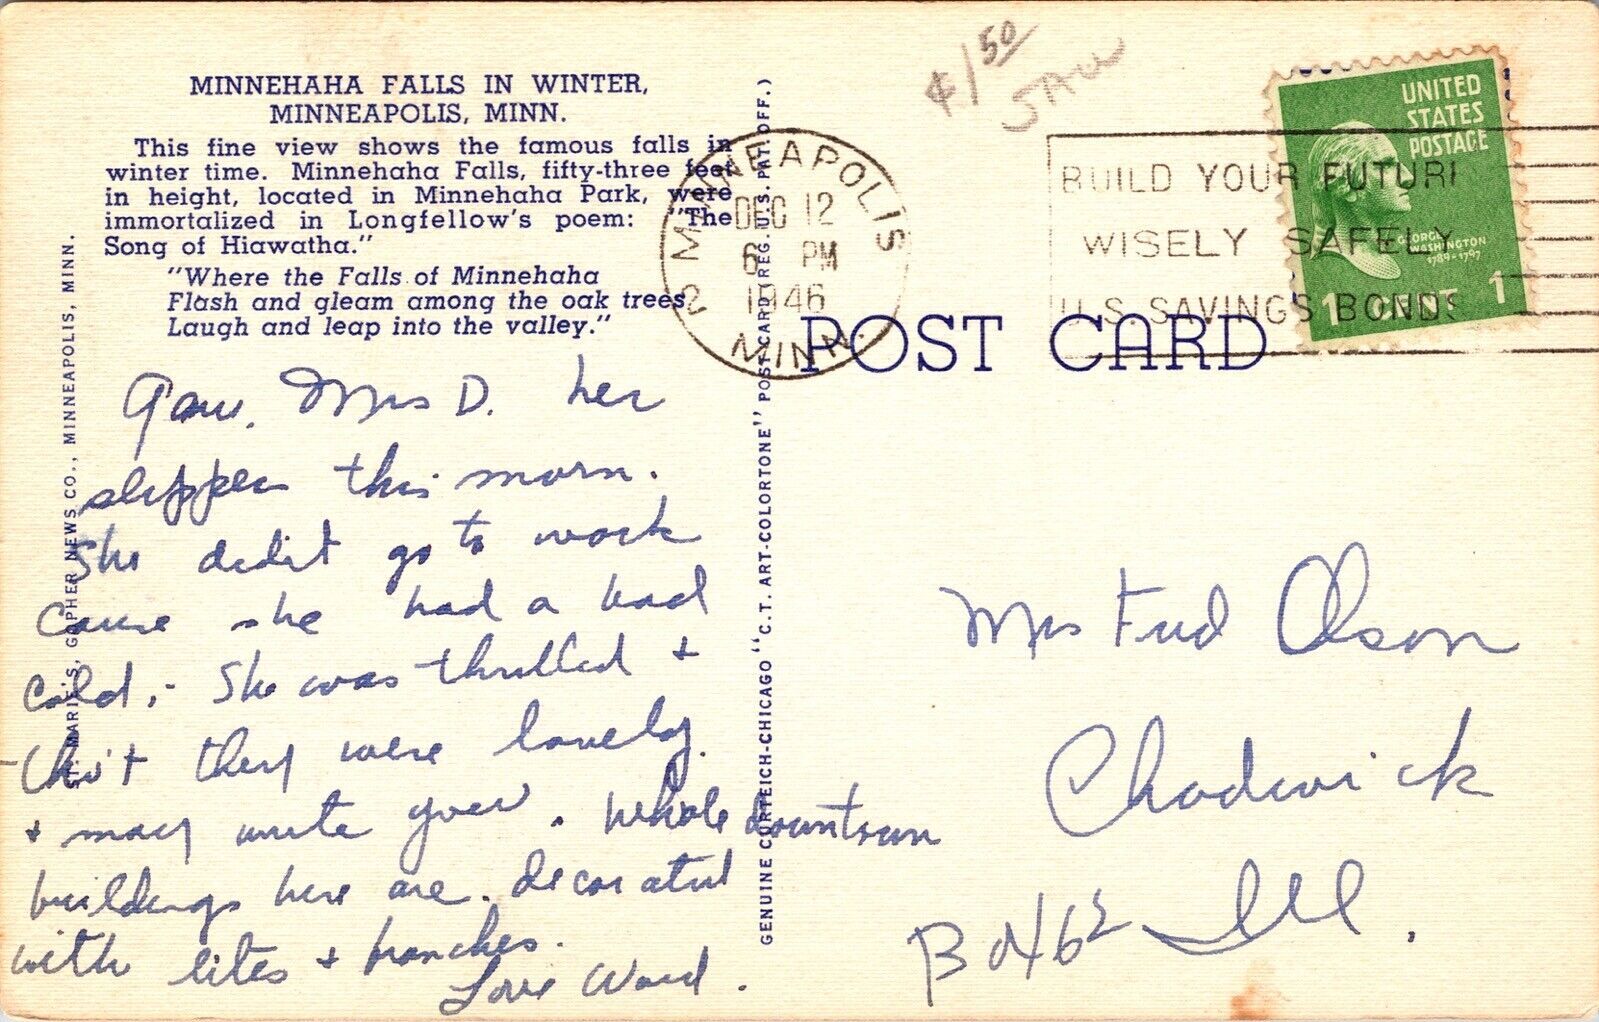 MINNEHAHA FALLS IN WINTER,
MINNEAPOLIS, MINN.
This fine view shows the famous falls in
winter time. Minnehaha Falls, fifty-three feet
in height, located in Minnehaha Park, were
immortalized in Longfellow's poem: "The
Song of Hiawatha."
"Where the Falls of Minnehaha
Flash and gleam among the oak trees
Laugh and leap into the valley."
Mrs D. her
slippers this morn.
She didit go to work
Cause she had a bad
Cold,- She was thrilled +
tho't they were lovely.
+ may write you. Whole downtown
buildings here are decorated
with lites + branches.
Love Ward.
ST. MARIE'S, GOPHER NEWS CO., MINNEAPOLIS, MINN.
GENUINE CURTEICH-CHICAGO "C.T. ART-COLORTONE" POST CARD (REG. U.S. PAT. OFF.)
1 50
MINNEAPOLIS
DEC 12
6 PM
1946
2 MINN.
BUILD YOUR FUTURE
WISELY SAFELY
U.S. SAVINGS BONDS
UNITED
STATES
POSTAGE
GEORGE
WASHINGTON
1789-1797
1 CENT 1
POST CARD
Mrs Fred Olson
Chadwick
Ill.